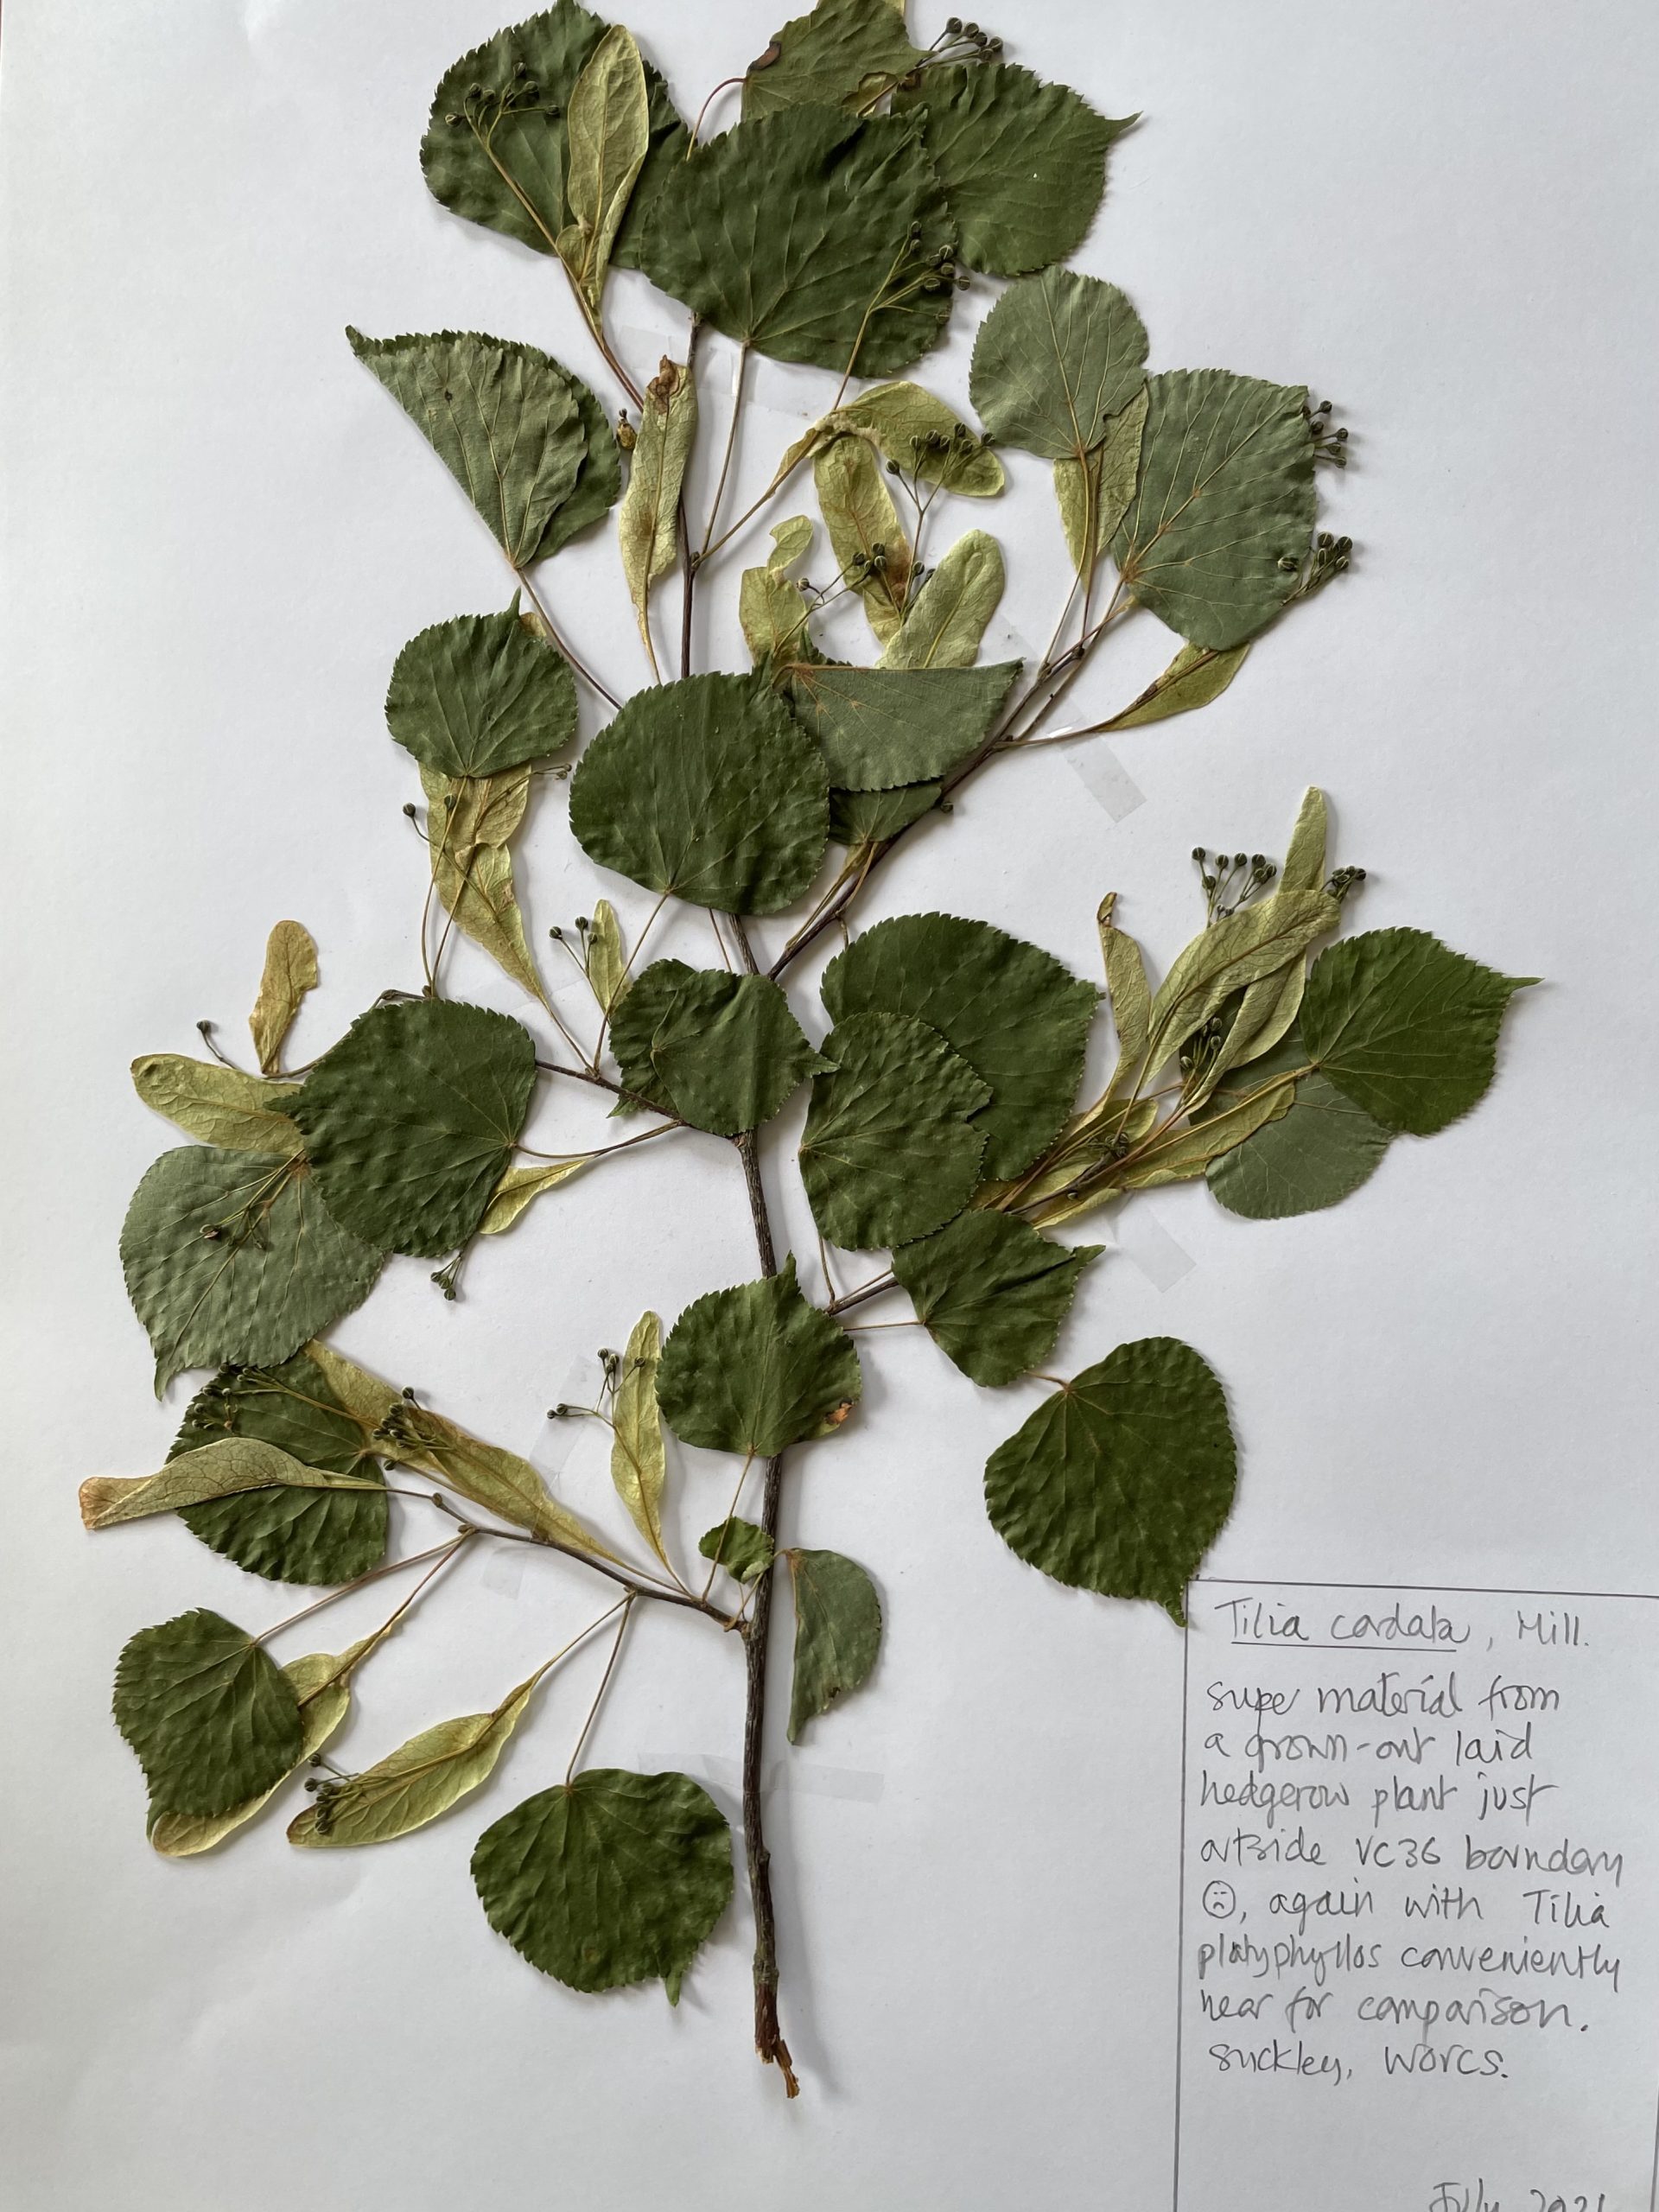 Tilia cordata, Mill.
super material from
a grown-out laid
hedgerow plant just
outside VC36 boundary
☹, again with Tilia
platyphyllos conveniently
near for comparison.
Suckley, Worcs.
July 2021